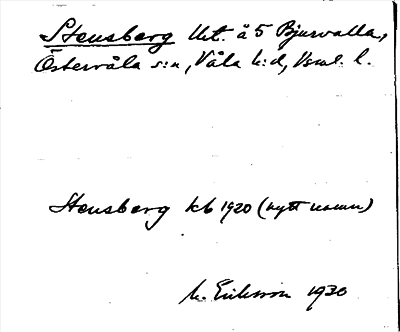 Stensberg lht. å 5 Bjurvalla,
Östervåla s:n, Våla h:d, Vsml. l.
Stensberg kb 1920 (nytt namn)
M. Eriksson 1930